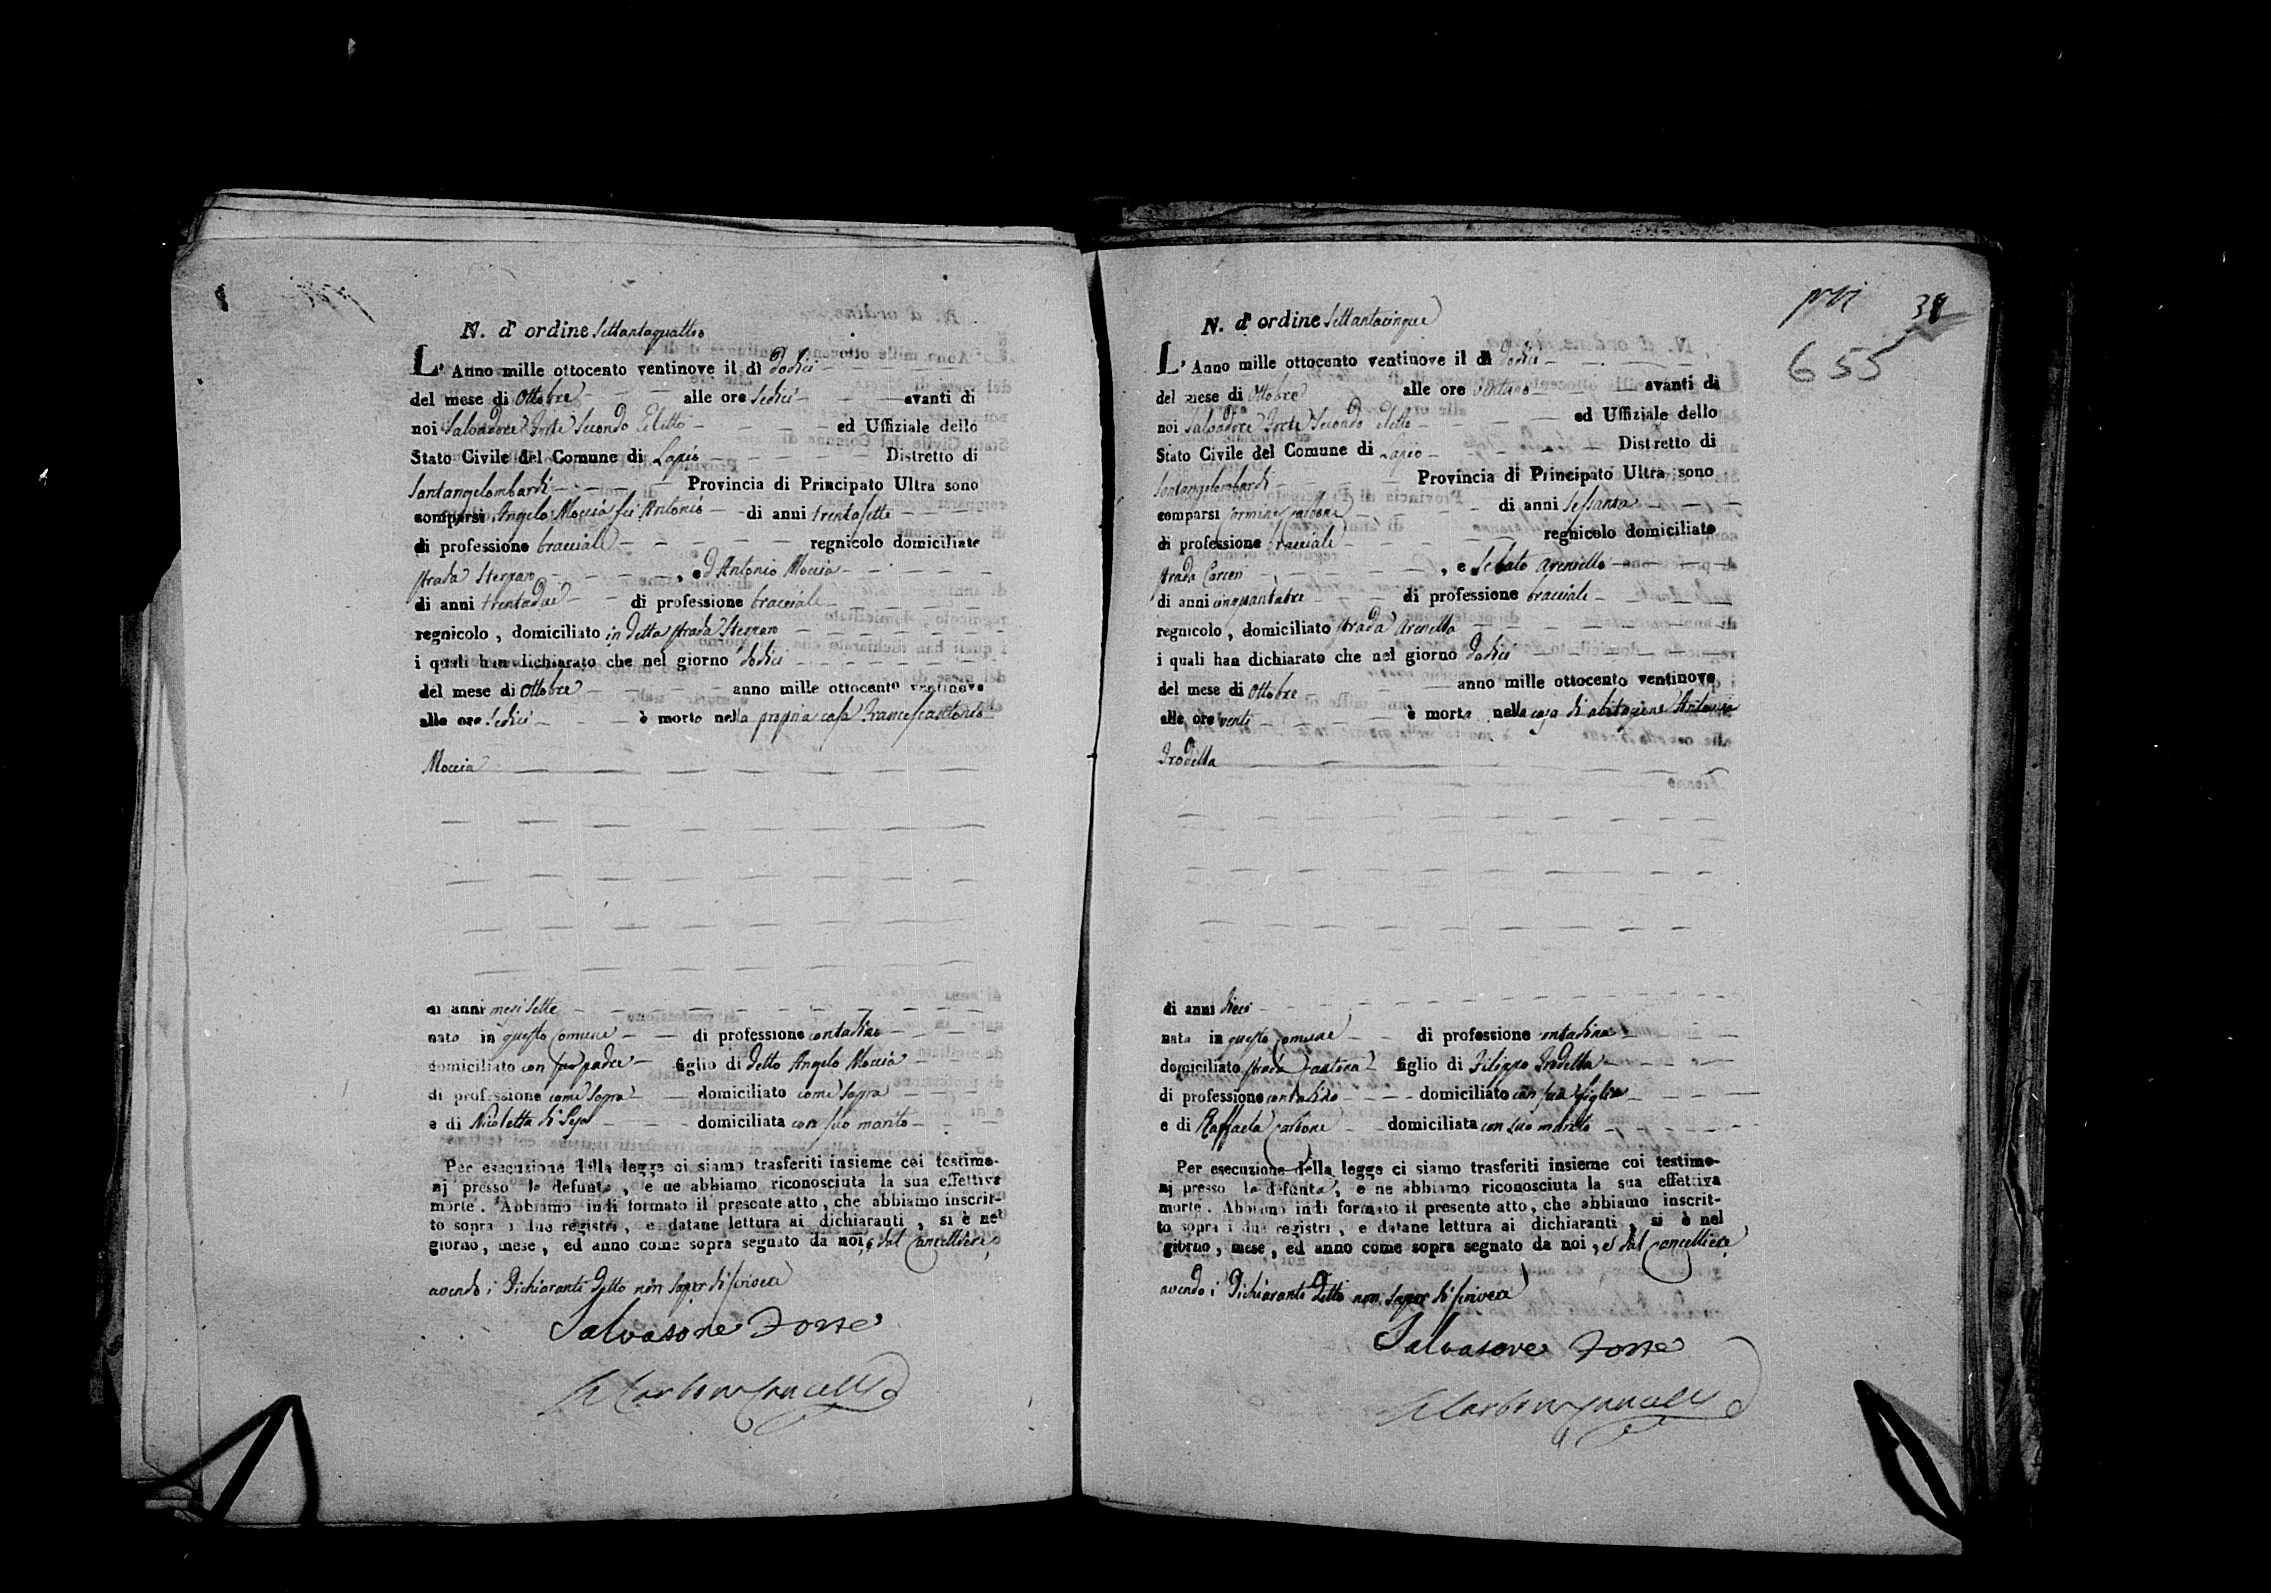 N. d' ordine Settantaquattro
L' Anno mille ottocento ventinove il dì dodici
del mese di Ottobre alle ore Sedici avanti di
noi Salvadore Forte Secondo Eletto ed Uffiziale dello
Stato Civile del Comune di Lapio Distretto di
Santangelombardi Provincia di Principato Ultra sono
comparsi Angelo Moccia fu Antonio di anni trentasette
di professione bracciale regnicolo domiciliato
strada , ed Antonio Moccia
di anni trentadue di professione bracciale
regnicolo , domiciliato in detta strada
i quali han dichiarato che nel giorno dodici
del mese di Ottobre anno mille ottocento ventinove
alle ore Sedici è morto nella propria casa Francescantonio
Moccia
di anni mesi Sette
nato in questo Comune di professione contadino
domiciliato con suo padre figlio di detto Angelo Moccia
di professione come Sopra domiciliato come Sopra
e di Nicoletta di domiciliata con suo marito
Per esecuzione della legge ci siamo trasferiti insieme coi testimo-
nj presso lo defunto , e ne abbiamo riconosciuta la sua effettiva
morte . Abbiamo indi formato il presente atto , che abbiamo inscrit-
to sopra i due registri , e datane lettura ai dichiaranti , si è nel
giorno , mese , ed anno come sopra segnato da noi, e dal Cancelliere
avendo i Dichiaranti detto non saper di scrivere
Salvadore Forte
Carbone Cancell
39
655
N. d' ordine Settantacinque
L' Anno mille ottocento ventinove il dì dodici
del mese di Ottobre alle ore ventuno avanti di
noi Salvadore Forte Secondo Eletto ed Uffiziale dello
Stato Civile del Comune di Lapio Distretto di
Santangelombardi Provincia di Principato Ultra sono
comparsi Carmine Carbone di anni Sessanta
di professione bracciale regnicolo domiciliato
strada Carceri , e Sabato Areniello
di anni cinquantatre di professione bracciale
regnicolo , domiciliato strada Arenella
i quali han dichiarato che nel giorno dodici
del mese di Ottobre anno mille ottocento ventinove
alle ore venti è morta nella casa di abitazione Antonia
Trodella
di anni dieci
nata in questo Comune di professione contadina
domiciliato strada figlio di Filippo Trodella
di professione contadino domiciliato con sua figlia
e di Raffaela Carbone domiciliata con suo marito
Per esecuzione della legge ci siamo trasferiti insieme coi testimo-
nj presso la defunta , e ne abbiamo riconosciuta la sua effettiva
morte . Abbiamo indi formato il presente atto , che abbiamo inscrit-
to sopra i due registri , e datane lettura ai dichiaranti , si è nel
giorno , mese , ed anno come sopra segnato da noi , e dal Cancelliere
avendo i Dichiaranti detto non saper di scrivere
Salvadore Forte
Carbone Cancell